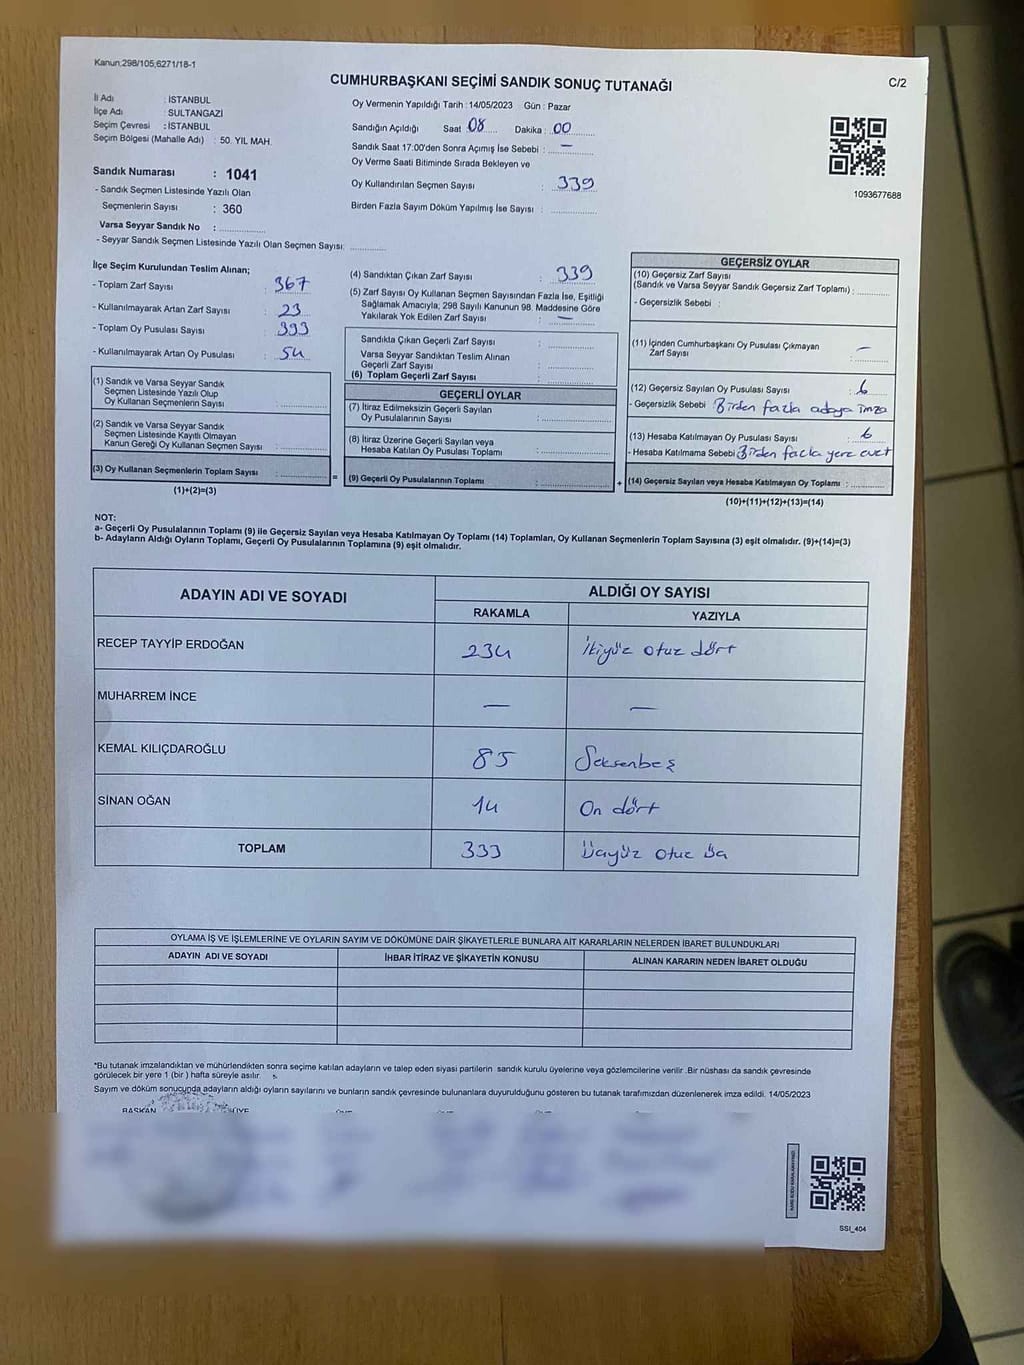 Kanun:298/105;6271/18-1
CUMHURBAŞKANI SEÇİMİ SANDIK SONUÇ TUTANAĞI
C/2
İl Adı : İSTANBUL
İlçe Adı : SULTANGAZİ
Seçim Çevresi : İSTANBUL
Seçim Bölgesi (Mahalle Adı) : 50. YIL MAH.
Oy Vermenin Yapıldığı Tarih : 14/05/2023 Gün : Pazar
Sandığın Açıldığı Saat 08 Dakika : 00
Sandık Saat 17:00'den Sonra Açımış İse Sebebi : —
Oy Verme Saati Bitiminde Sırada Bekleyen ve
Oy Kullandırılan Seçmen Sayısı : 339
Birden Fazla Sayım Döküm Yapılmış İse Sayısı :
1093677688
Sandık Numarası : 1041
- Sandık Seçmen Listesinde Yazılı Olan
Seçmenlerin Sayısı : 360
Varsa Seyyar Sandık No :
- Seyyar Sandık Seçmen Listesinde Yazılı Olan Seçmen Sayısı:
İlçe Seçim Kurulundan Teslim Alınan;
- Toplam Zarf Sayısı : 367
- Kullanılmayarak Artan Zarf Sayısı : 23
- Toplam Oy Pusulası Sayısı : 393
- Kullanılmayarak Artan Oy Pusulası : 54
(1) Sandık ve Varsa Seyyar Sandık
Seçmen Listesinde Yazılı Olup
Oy Kullanan Seçmenlerin Sayısı :
(2) Sandık ve Varsa Seyyar Sandık
Seçmen Listesinde Kayıtlı Olmayan
Kanun Gereği Oy Kullanan Seçmen Sayısı :
(3) Oy Kullanan Seçmenlerin Toplam Sayısı :
(1)+(2)=(3)
(4) Sandıktan Çıkan Zarf Sayısı : 339
(5) Zarf Sayısı Oy Kullanan Seçmen Sayısından Fazla İse, Eşitliği
Sağlamak Amacıyla; 298 Sayılı Kanunun 98. Maddesine Göre
Yakılarak Yok Edilen Zarf Sayısı : —
Sandıkta Çıkan Geçerli Zarf Sayısı :
Varsa Seyyar Sandıktan Teslim Alınan
Geçerli Zarf Sayısı :
(6) Toplam Geçerli Zarf Sayısı :
GEÇERLİ OYLAR
(7) İtiraz Edilmeksizin Geçerli Sayılan
Oy Pusulalarının Sayısı :
(8) İtiraz Üzerine Geçerli Sayılan veya
Hesaba Katılan Oy Pusulası Toplamı :
= (9) Geçerli Oy Pusulalarının Toplamı :
GEÇERSİZ OYLAR
(10) Geçersiz Zarf Sayısı
(Sandık ve Varsa Seyyar Sandık Geçersiz Zarf Toplamı) :
- Geçersizlik Sebebi :
(11) İçinden Cumhurbaşkanı Oy Pusulası Çıkmayan
Zarf Sayısı : —
(12) Geçersiz Sayılan Oy Pusulası Sayısı : 6
- Geçersizlik Sebebi Birden fazla adaya imza
(13) Hesaba Katılmayan Oy Pusulası Sayısı : 6
- Hesaba Katılmama Sebebi Birden fazla yere evet
+ (14) Geçersiz Sayılan veya Hesaba Katılmayan Oy Toplamı :
(10)+(11)+(12)+(13)=(14)
NOT:
a- Geçerli Oy Pusulalarının Toplamı (9) ile Geçersiz Sayılan veya Hesaba Katılmayan Oy Toplamı (14) Toplamları, Oy Kullanan Seçmenlerin Toplam Sayısına (3) eşit olmalıdır. (9)+(14)=(3)
b- Adayların Aldığı Oyların Toplamı, Geçerli Oy Pusulalarının Toplamına (9) eşit olmalıdır.
ADAYIN ADI VE SOYADI
ALDIĞI OY SAYISI
RAKAMLA YAZIYLA
RECEP TAYYİP ERDOĞAN 234 İkiyüz otuz dört
MUHARREM İNCE — —
KEMAL KILIÇDAROĞLU 85 Seksenbeş
SİNAN OĞAN 14 On dört
TOPLAM 333 Üçyüz otuz üç
OYLAMA İŞ VE İŞLEMLERİNE VE OYLARIN SAYIM VE DÖKÜMÜNE DAİR ŞİKAYETLERLE BUNLARA AİT KARARLARIN NELERDEN İBARET BULUNDUKLARI
ADAYIN ADI VE SOYADI İHBAR İTİRAZ VE ŞİKAYETİN KONUSU ALINAN KARARIN NEDEN İBARET OLDUĞU
*Bu tutanak imzalandıktan ve mühürlendikten sonra seçime katılan adayların ve talep eden siyasi partilerin sandık kurulu üyelerine veya gözlemcilerine verilir. Bir nüshası da sandık çevresinde
görülecek bir yere 1 (bir) hafta süreyle asılır.
Sayım ve döküm sonucunda adayların aldığı oyların sayılarını ve bunların sandık çevresinde bulunanlara duyurulduğunu gösteren bu tutanak tarafımızdan düzenlenerek imza edildi. 14/05/2023
BAŞKAN
SSİ_404